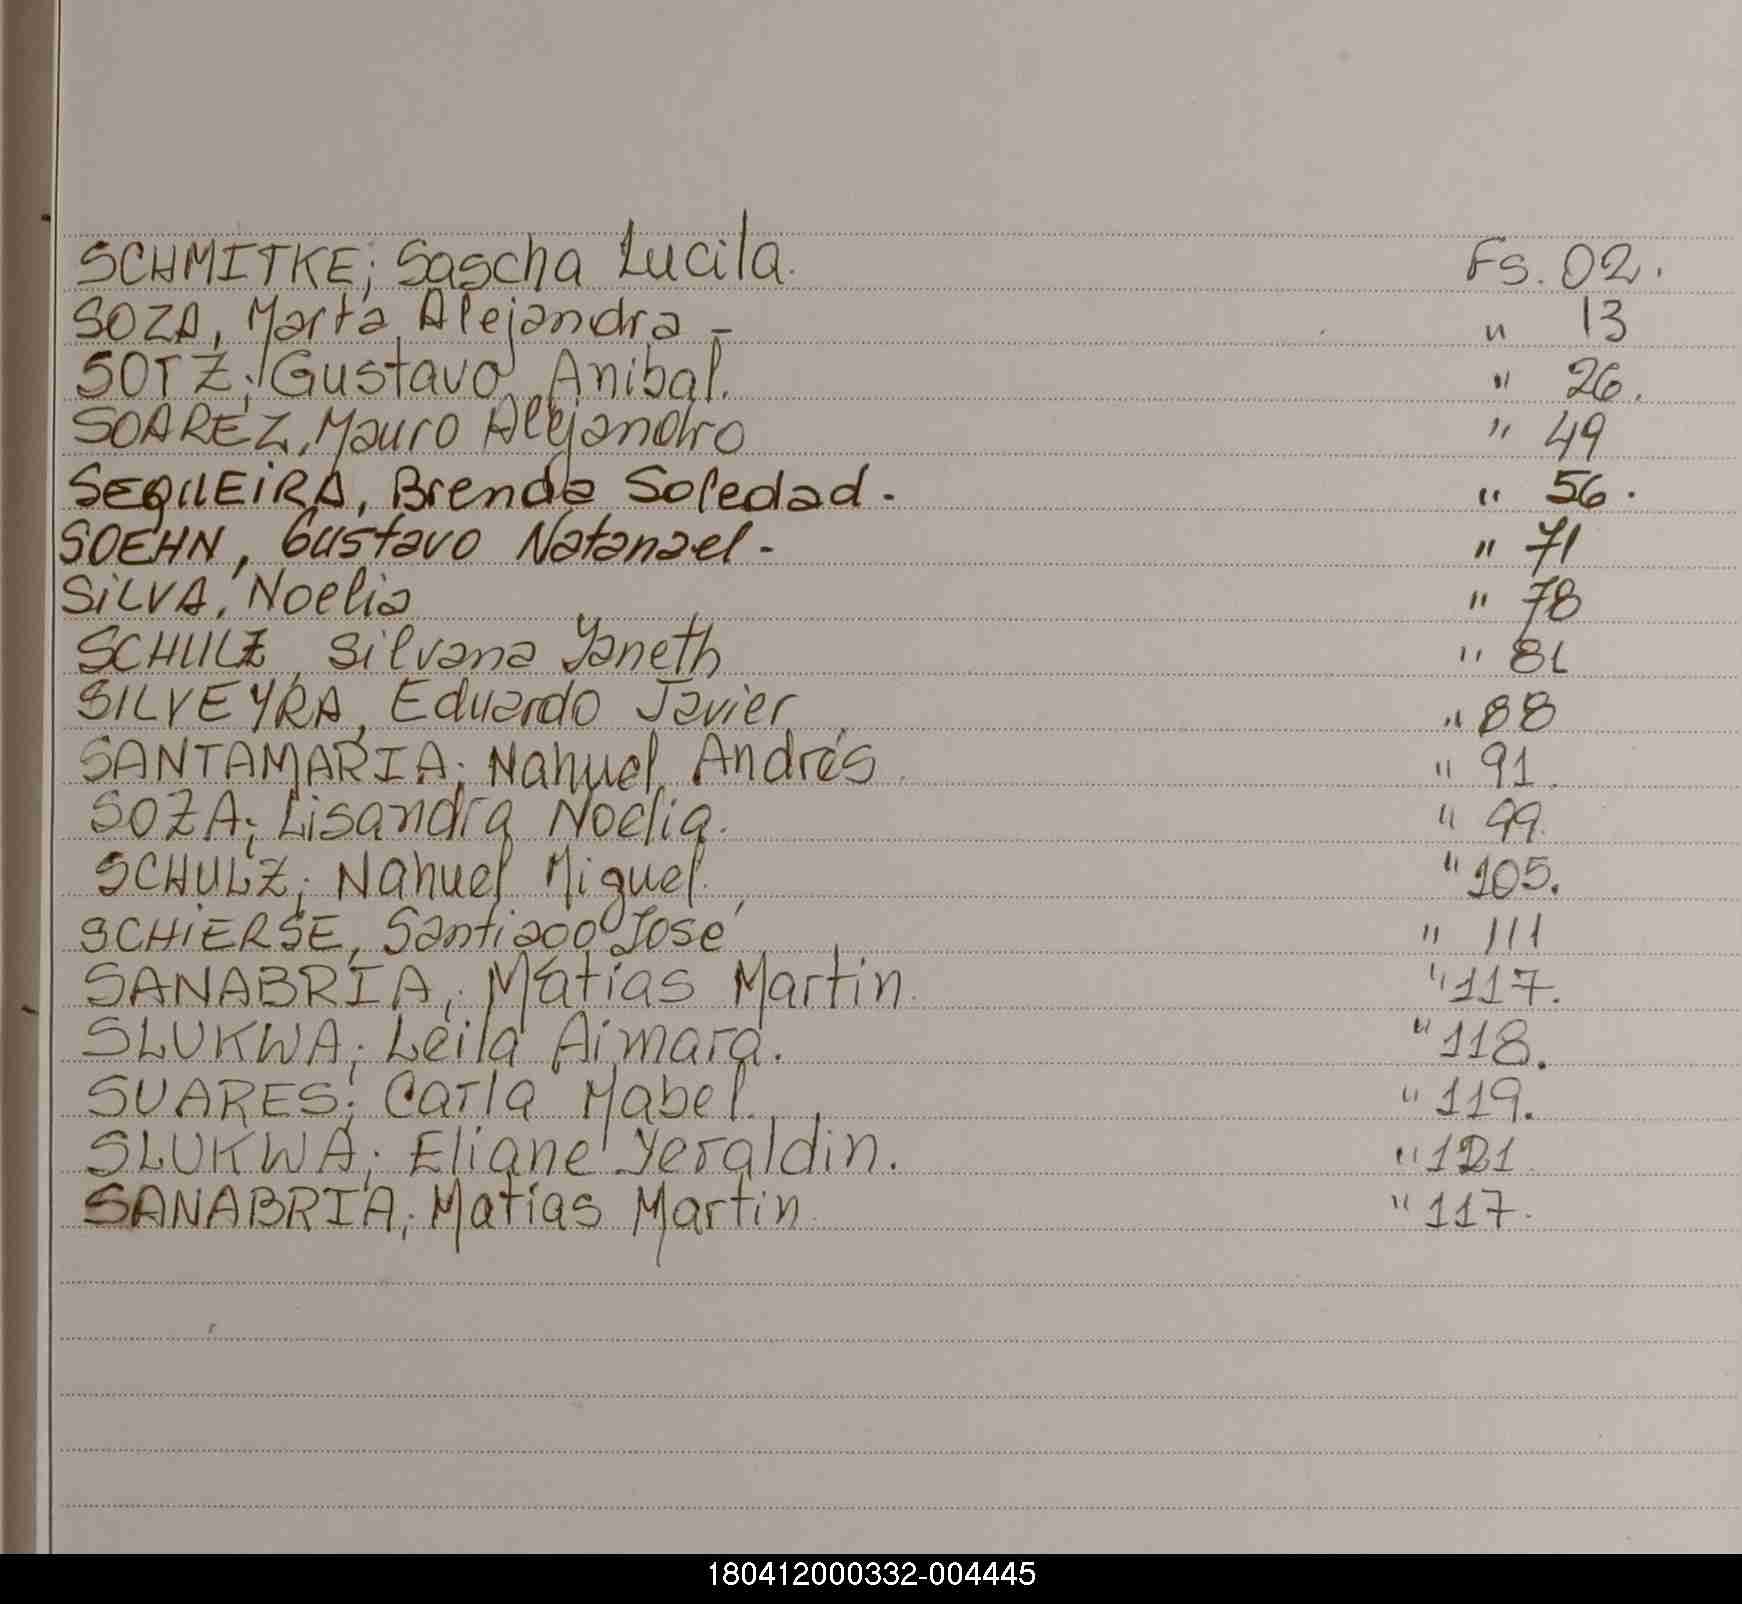 SCHMITKE; Sascha Lucila. Fs. 02.
SOZA, Marta Alejandra - " 13
SOTZ; Gustavo Anibal. " 26.
SOAREZ, Mauro Alejandro " 49
SEQUEIRA, Brenda Soledad. " 56.
SOEHN, Gustavo Natanael - " 71
SILVA, Noelia " 78
SCHULZ, Silvana Yaneth " 81
SILVEYRA, Eduardo Javier " 88
SANTAMARIA; Nahuel Andrés. " 91.
SOZA; Lisandra Noelia. " 99.
SCHULZ; Nahuel Miguel. " 105.
SCHIERSE, Santiago José " 111
SANABRIA; Matías Martin. " 117.
SLUKWA; Leila Aimara. " 118.
SUARES; Carla Mabel. " 119.
SLUKWA; Eliane Yeraldin. " 121.
SANABRIA; Matías Martin. " 117.
180412000332-004445